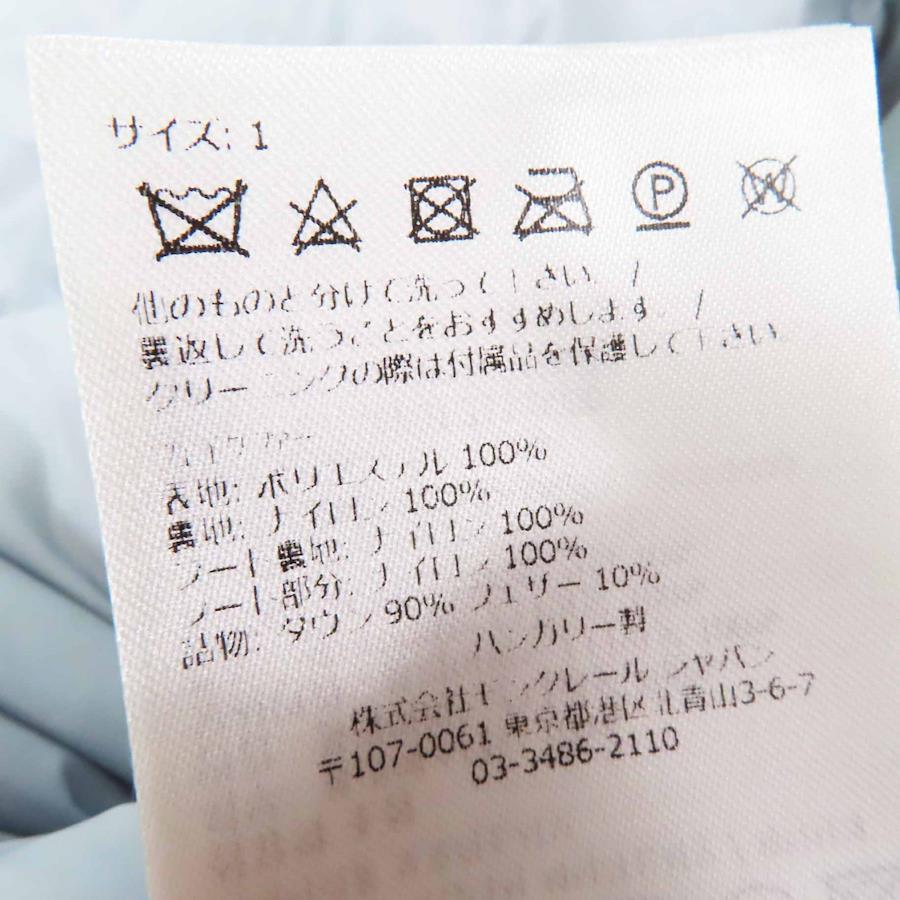 サイズ: 1
P
W
他のものと分けて洗って下さい。/
裏返しで洗うことをおすすめします。/
クリーニングの際は付属品を保護して下さい
フェイクファー
表地: ポリエステル 100%
裏地: ナイロン 100%
フード裏地: ナイロン 100%
フード部分: ナイロン 100%
詰物: ダウン 90% フェザー 10%
ハンガリー製
株式会社モンクレール ジャパン
〒107-0061 東京都港区北青山3-6-7
03-3486-2110